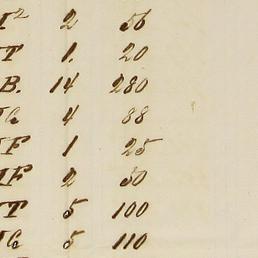 2 56
T 1. 20
B. 14 280
G 4 88
F 1 25
F 2 50
T 5 100
G 5 110